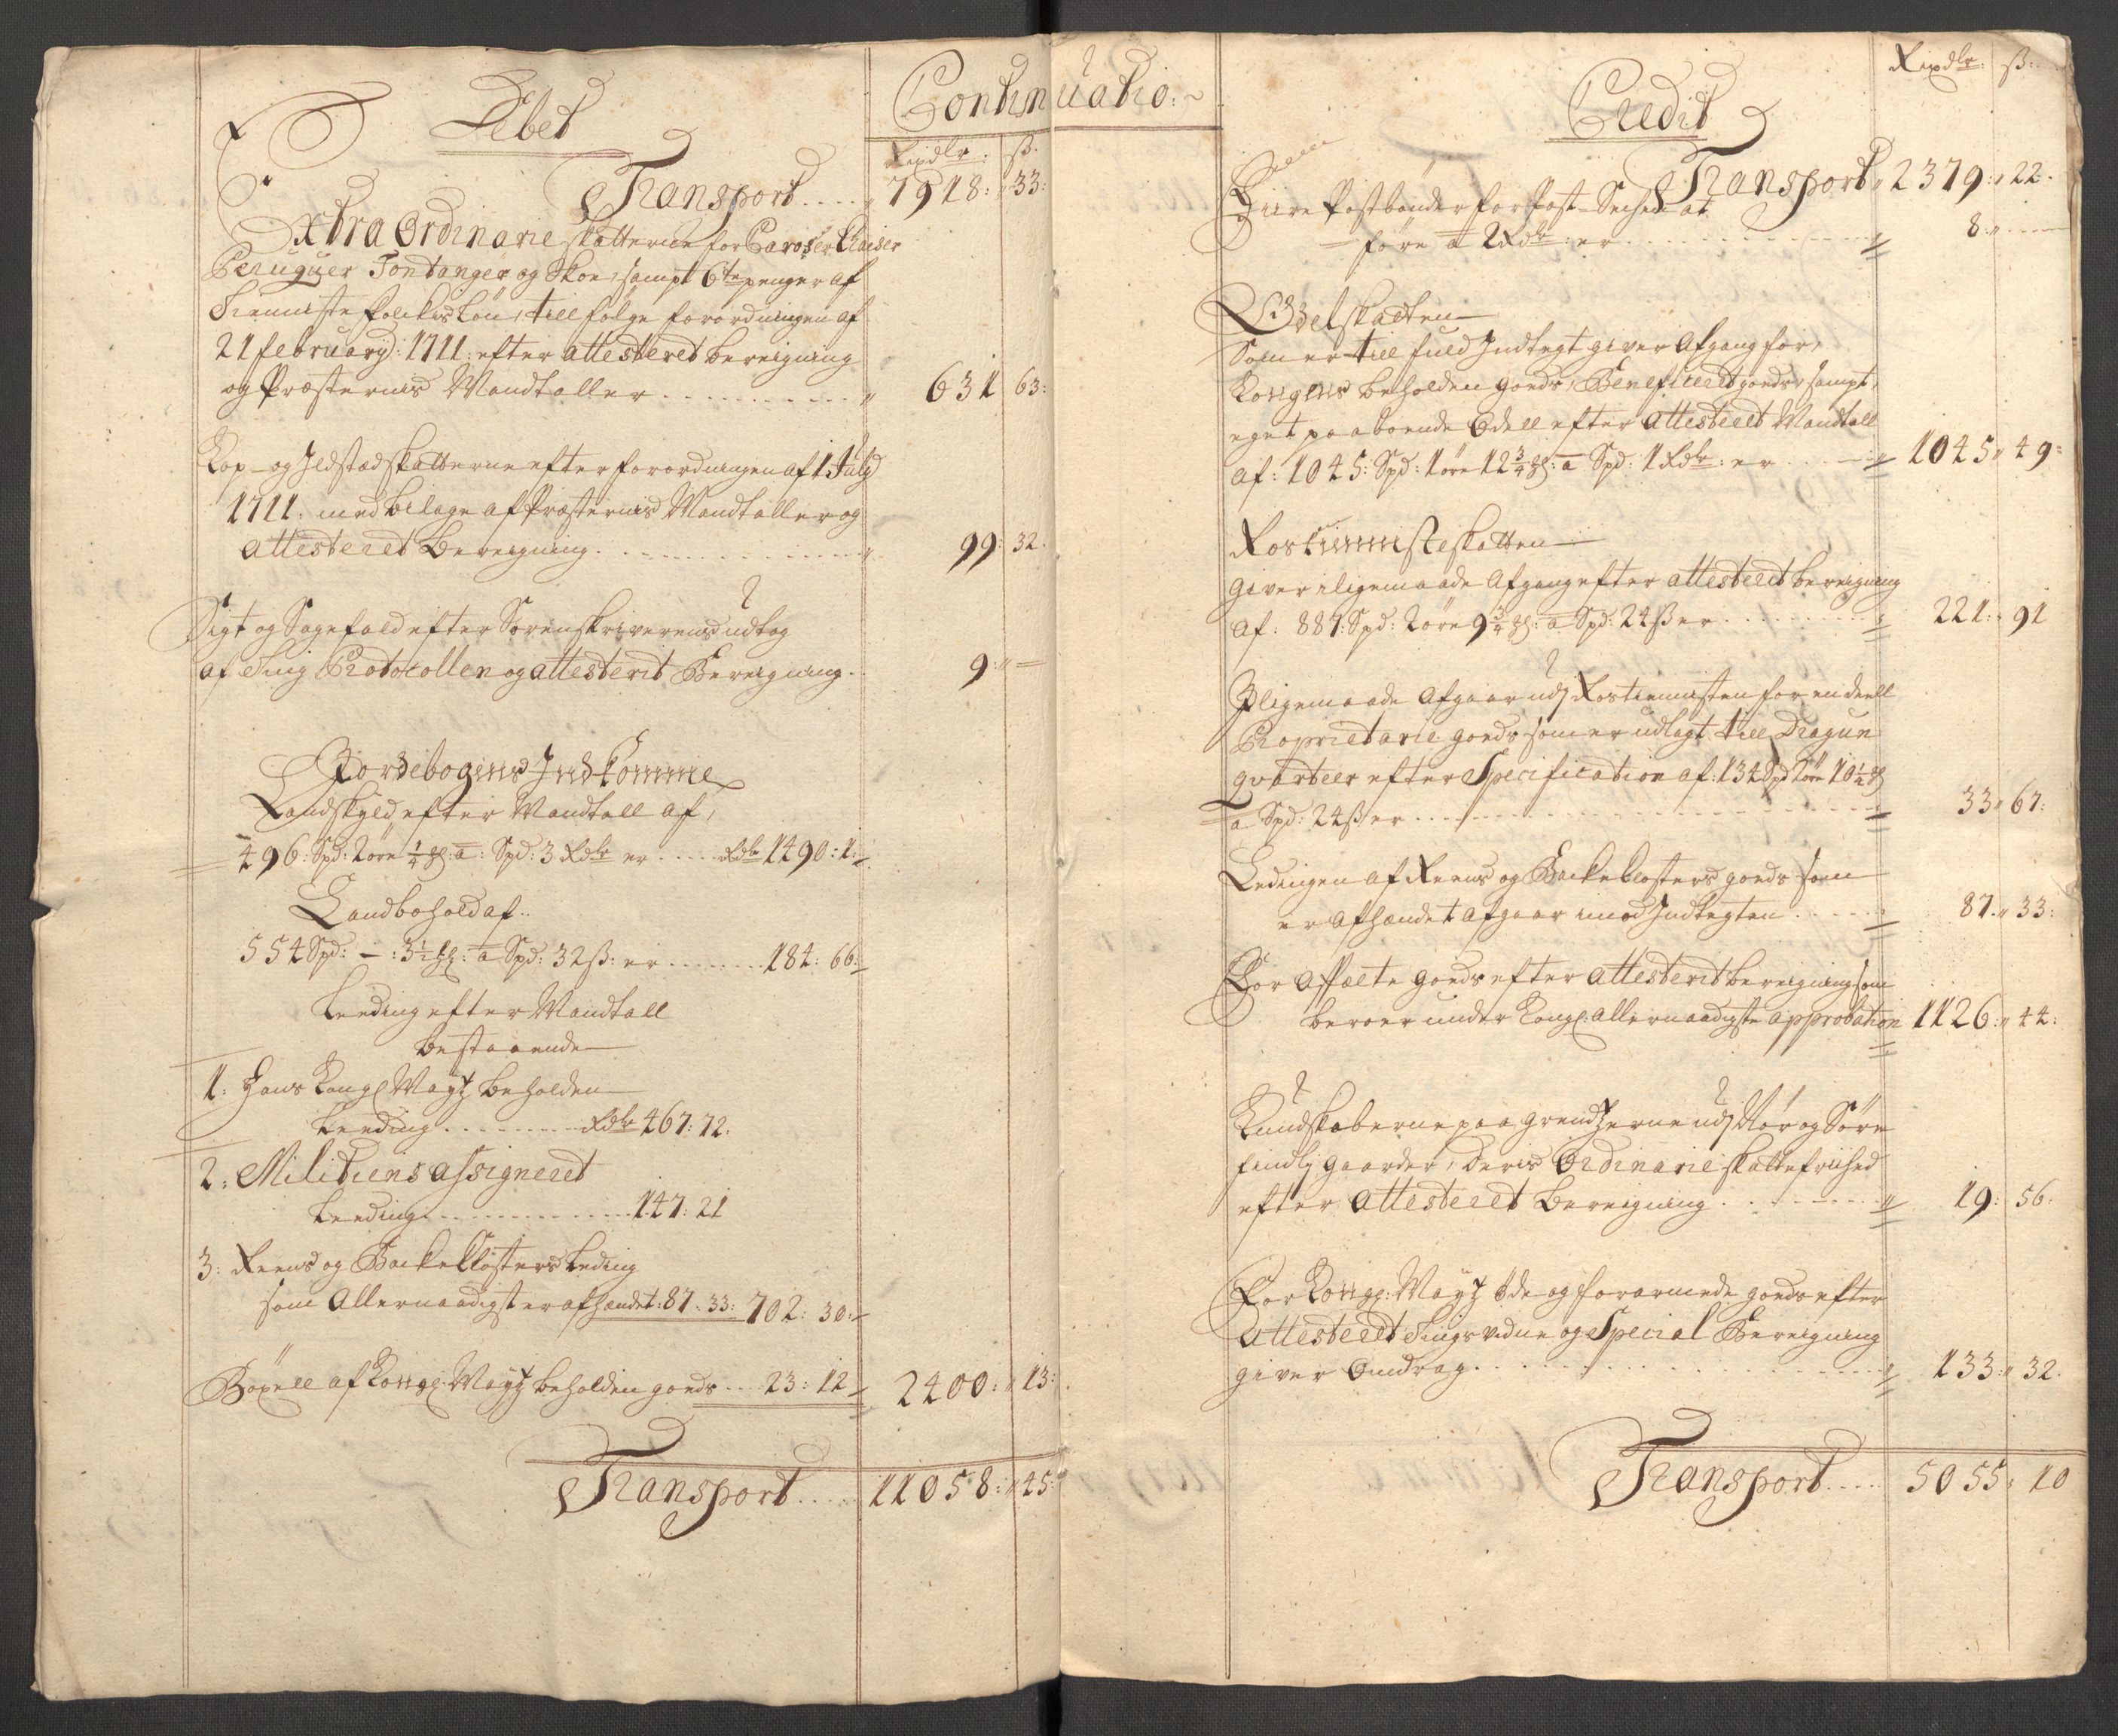 Continuatio:~
Debet
Rixdlr: ß.
Transport..... 7918: 33:
Extra Ordinarie skatterne for Caroser Chaiser
Peruquer Fontanger og Skoe, sampt 6te penger af
Tienniste folckis Lön, till følge forordningen af
21 february: 1711: efter attesteret bereigning
og Præsternis Mandtaller........... 631 63:
Kop- og Ildstædskatterne efter forordningen af 1 July
1711. med bilage af Præsternis Mandtaller og
attesteret Bereigning. ............ 99: 32.
Sigt og Sagefald efter Sorenskriverens udtog
af Ting Protocollen og attesterit Bereigning.. 9:"=
Jordebogens Indkomme
Landskyld efter Mandtall af,
496: Spd: 2öre 1/4 ℔: a: Spd: 3 Rdlr er .... Rdlr 1490: 1:
Landbohold af..
554 Spd: - : 3 1/2 ℔: a Spd: 32 ß: er ........ 184: 66:
Leeding efter Mandtall
bestaaende
1: Hans Kongl Mayt beholden
Leeding ......... Rdlr 467: 72.
2: Militiens assigneret
Leeding .............. 147: 21
3: Reens og Backe Closters Leding
som Allernaadigst er afhændet: 87: 33: 702: 30:
Böxell af Kongl: Mayt beholden goeds ... 23: 12 2400: 13:
Transport..... 11058: 45:
Credit
Rixdlr: ß:
Transport 2379: 22.
Fiire Postbönder for Post Seiset at
före a 2 Rdlr: er ............ 8: "
Odelskatten
Som er till fuld Indtegt giver Afgang for,
Kongens beholden goeds, Beneficeret goeds, sampt,
eget paaboende Odell efter attesteret Mandtall
af: 1045: Spd: 1öre 12 3/4 ℔: a Spd: 1 Rdlr: er ..... 1045" 49:
Rostiennisteskatten
giver iligemaade Afgang efter attesteret bereigning
af: 887: Spd: 2öre 9 3/4 ℔: a Spd: 24 ß er ......... 221: 91
Iligemaade Afgaar udj Rostiennisten for en deell
Proprietarie goeds som er udlagt till Dragun
qvarteer efter Specification af: 134 Spd 2öre 10 1/4 ℔
a Spd: 24 ß er ................ 33" 67:
Ledingen af Reens og Backe Closters goeds som
er afhændet afgaar imod Indtegten ...... 87." 33:
For affælte goeds efter attesterit bereigning som
beroer under Kongl: allernaadigste approbation 1126:" 44:
Kundskaberne paa grendtzerne udj Stör og Sörn
findlj gaarder, deris Ordinarie skattefriihed
efter attesteret Bereigning ......... 19: 56.
For Kongl: Mayt öde og forarmede goeds efter
attesteret Tingsvidne og Special Bereigning
giver Omdrag ............... 133:" 32.
Transport.... 5055: 10